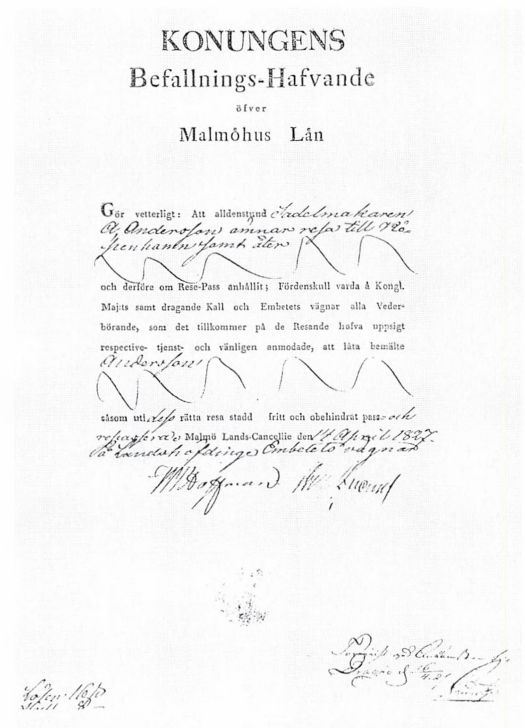 KONUNGENS
Befallnings-Hafvande
öfver
Malmöhus Län
Gör vetterligt: At alldenstund Sadelmakaren
A. Andersson ämnar resa till Kö-
penhamn samt åter
och derföre om Rese-Pass anhållit; Fördenskull varda å Kongl.
Maj:ts samt dragande Kall och Embetets vägnar alla Veder-
börande, som det tillkommer på de Resande hafva uppsigt
respective tjenst- och vänligen anmodade, at låta bemälte
Andersson
såsom uti dess rätta resa stadd fritt och obehindrat pass- och
repassera. Malmö Lands-Cancellie den 14 April 1827.
På Landshöfdinge Embetets vägnar
Hoffman
Lösen 16 sk